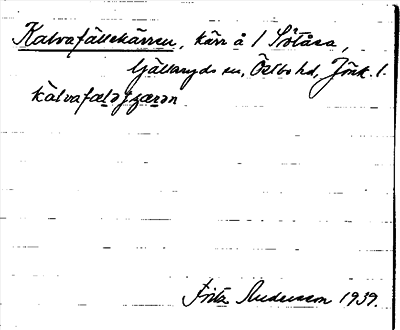 Kalvafällekärren, kärr å 1 Slötåsa,
Gällaryds sn, Östbo hd, Jönk. l.
kalvafæləçærən
Frita Andersson 1939.